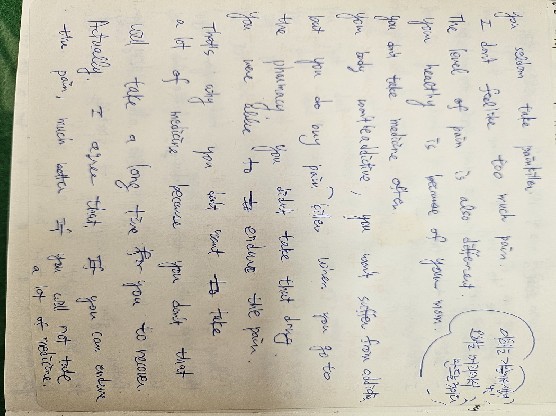 you seldom take painkiller
I dont feel like too much pain.
The level of pain is also different.
you healthy is because of your mom.
you dont take medicine often
you body wont be addictive, you wont suffer from
but you do buy pain killer when you go to
the pharmacy you didnt take that drug
you were able to endure the pain
That's why you dont want to take
a lot of medicine because you don't that
will take a long time for you to recover
Actually. I agree that If you can endure
the pain, much better If you will not take
a lot of medicine.